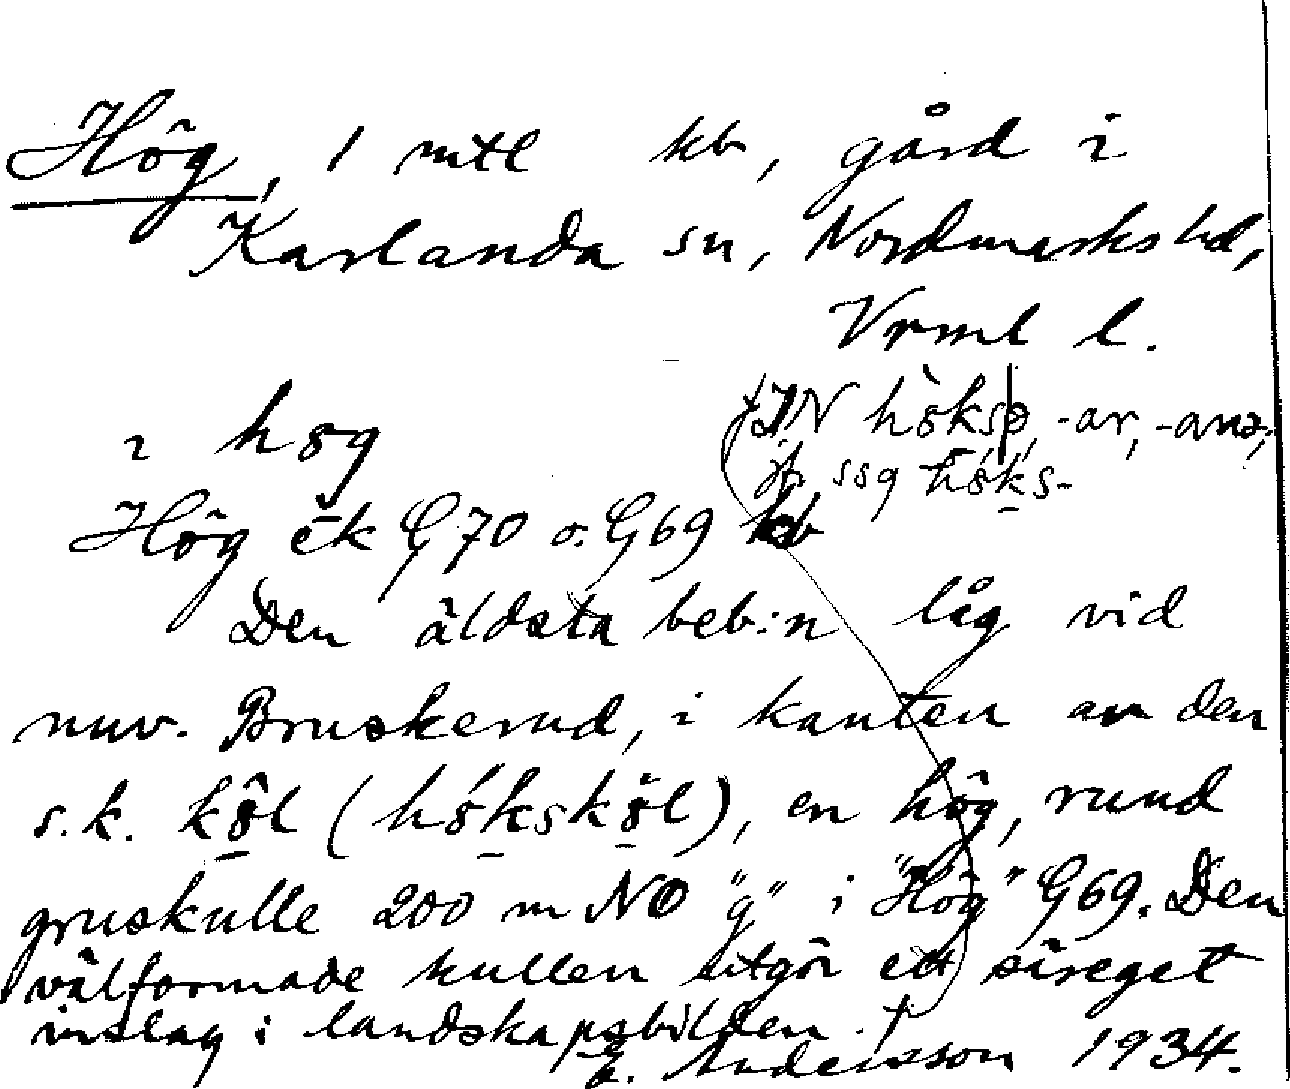 Hög, 1 mtl kb, gård i
Karlanda sn, Nordmarks hd,
Vrml l.
i høg
†IN hø̀ksþ, -ar, -anə;
jf. ssg høks-
Hög ek G70 o. G69 kb
Den äldsta beb:n låg vid
nuv. Bruskerud, i kanten av den
s.k. køl (hǿkskøl), en hög, rund
gruskulle 200 m NO "g" i "Hög" G69. Den
välformade kullen utgör ett säreget
inslag i landskapsbilden. †
E. Andersson 1934.